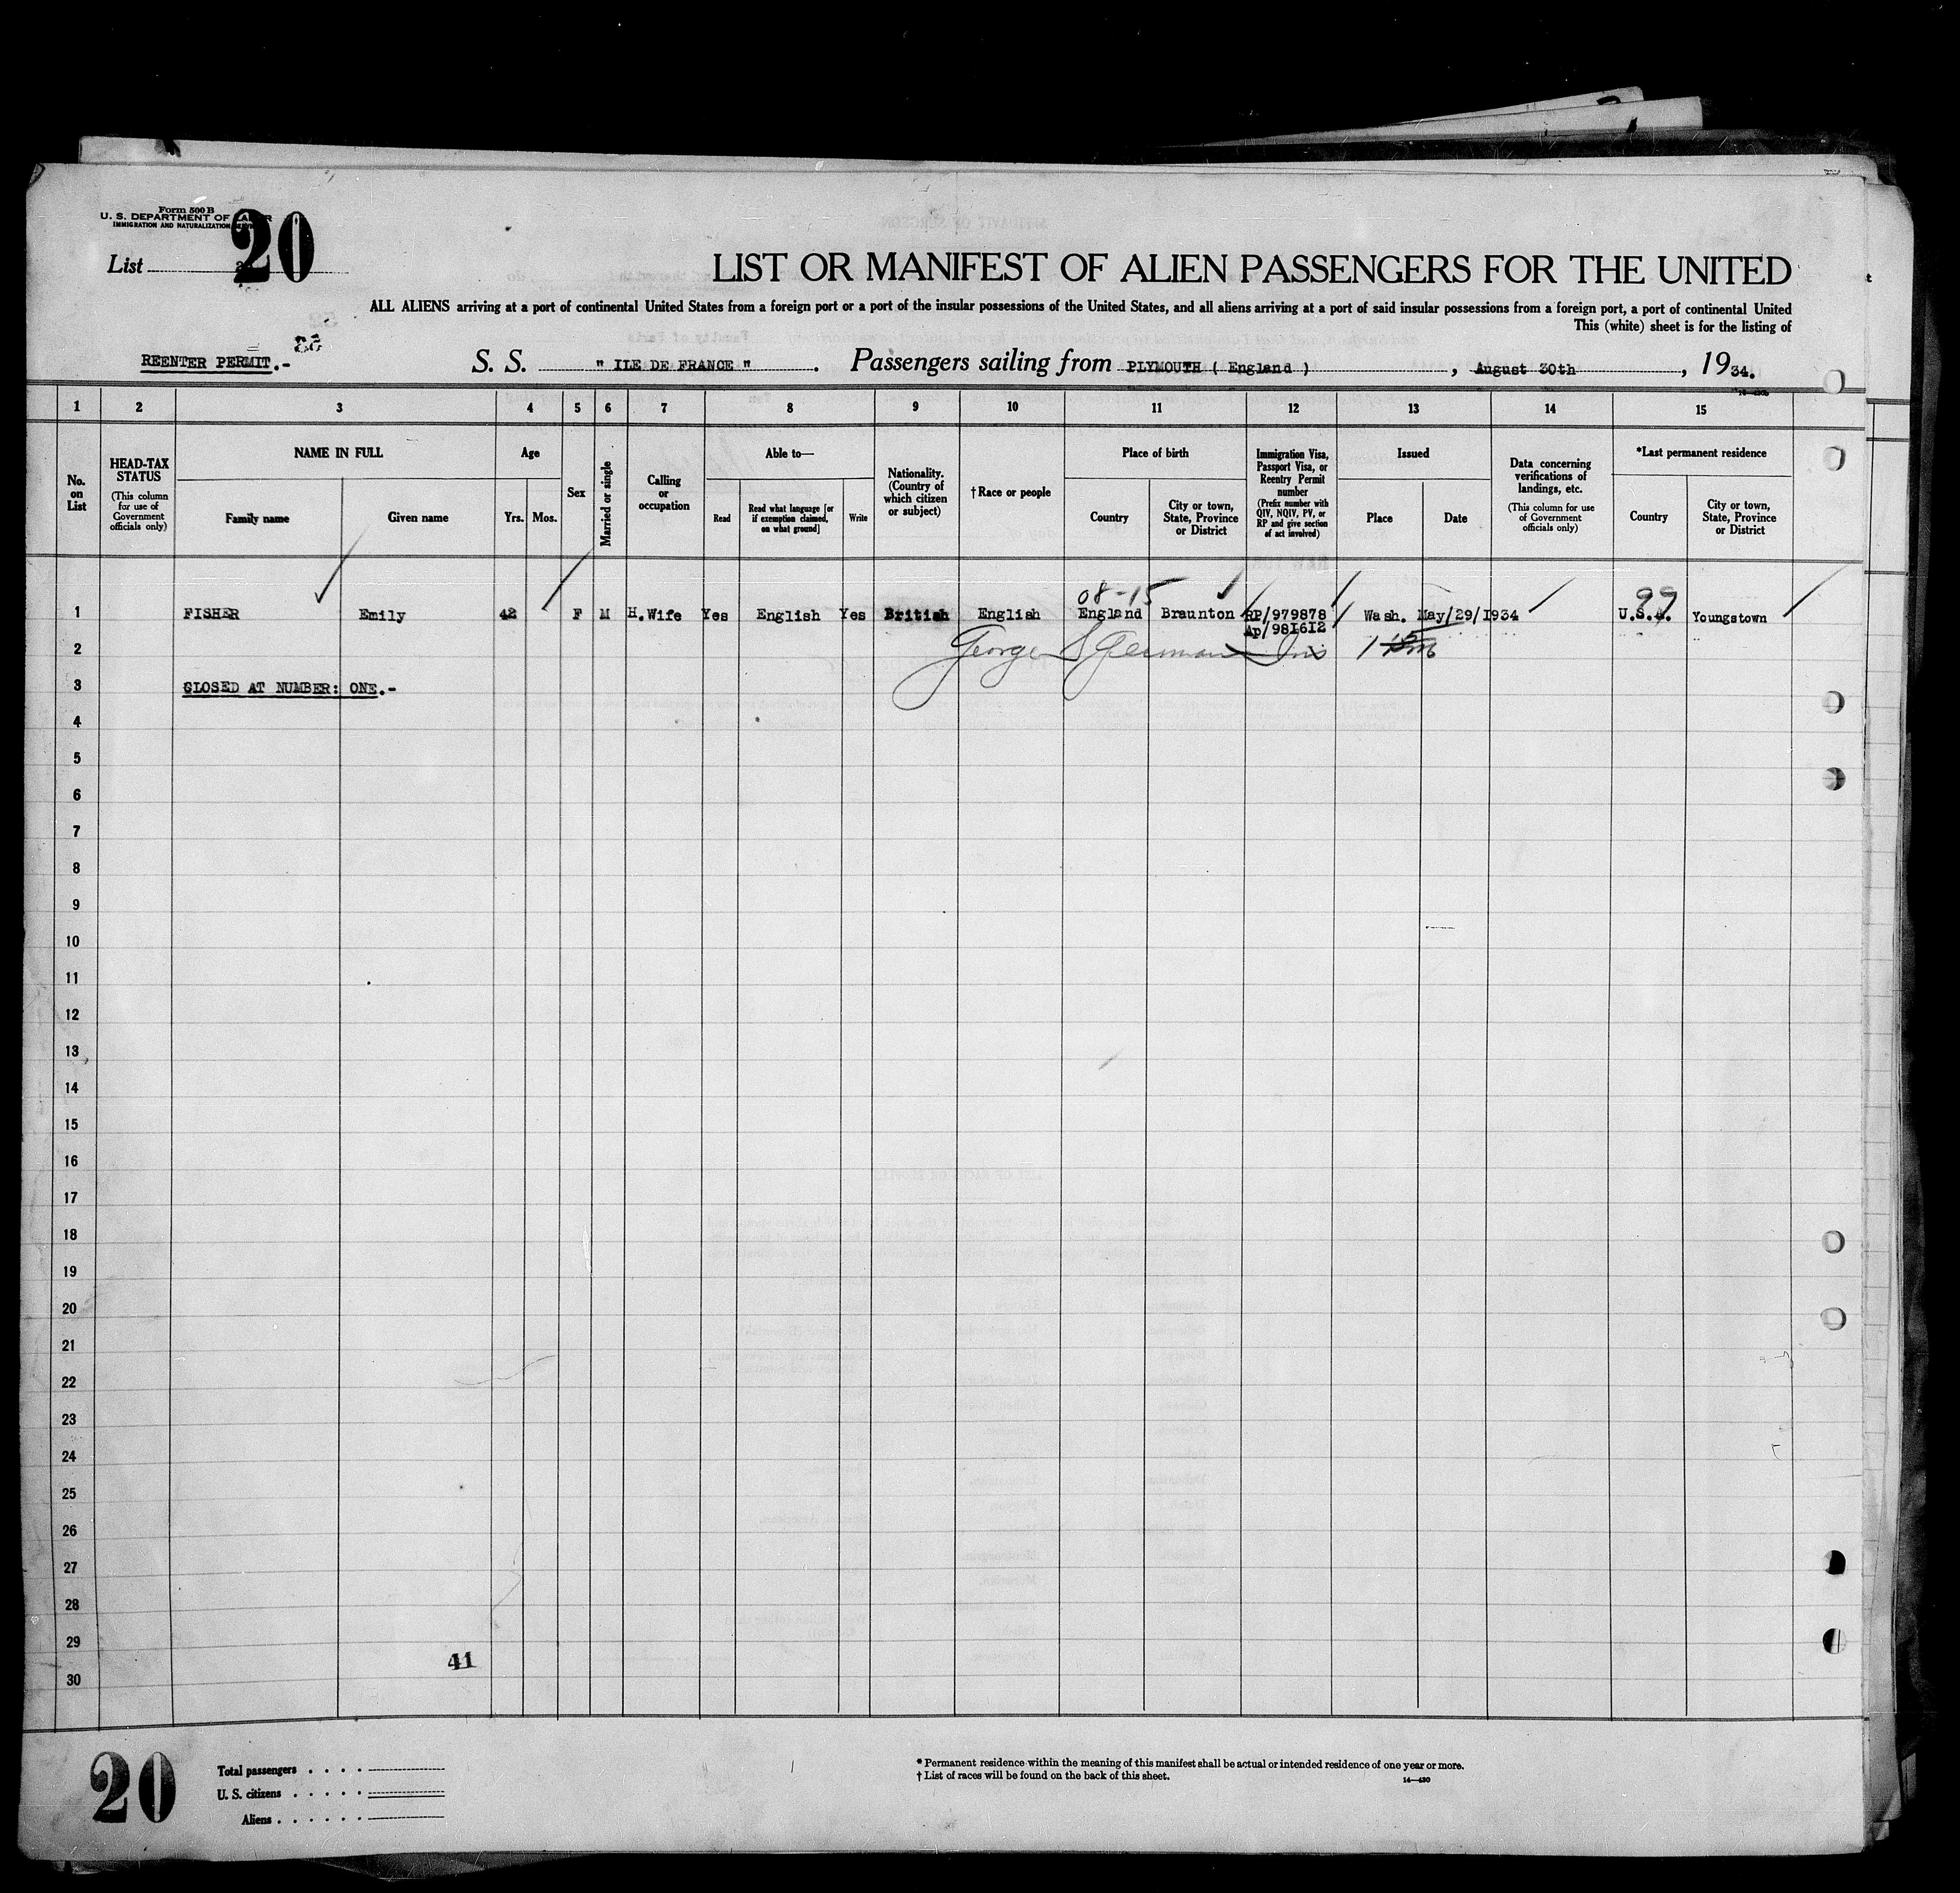 Form 500 B
U. S. DEPARTMENT OF LABOR
IMMIGRATION AND NATURALIZATION SERVICE
20
List
LIST OR MANIFEST OF ALIEN PASSENGERS FOR THE UNITED
ALL ALIENS arriving at a port of continental United States from a foreign port or a port of the insular possessions of the United States, and all aliens arriving at a port of said insular possessions from a foreign port, a port of continental United
This (white) sheet is for the listing of
REENTER PERMIT.-
S. S. " ILE DE FRANCE ". Passengers sailing from PLYMOUTH ( England ), August 30th, 1934.
1 2 3 4 5 6 7 8 9 10 11 12 13 14 15
No. on List
HEAD-TAX STATUS
(This column for use of Government officials only)
NAME IN FULL
Family name
Given name
Age
Yrs.
Mos.
Sex
Married or single
Calling or occupation
Able to—
Read
Read what language [or if exemption claimed, on what ground]
Write
Nationality. (Country of which citizen or subject)
† Race or people
Place of birth
Country
City or town, State, Province or District
Immigration Visa, Passport Visa, or Reentry Permit number
(Prefix number with QIV, NQIV, PV, or RP and give section of act involved)
Issued
Place
Date
Data concerning verifications of landings, etc.
(This column for use of Government officials only)
*Last permanent residence
Country
City or town, State, Province or District
08-15
99
1 FISHER Emily 42 F M H.Wife Yes English Yes British English England Braunton RP/979878 Wash. May/29/1934 U.S.A. Youngstown
Ap/981612
2 George S
3 CLOSED AT NUMBER: ONE.-
4
5
6
7
8
9
10
11
12
13
14
15
16
17
18
19
20
21
22
23
24
25
26
27
28
29
41
30
20
Total passengers . . . .
U. S. citizens . . . . .
Aliens . . . . . .
* Permanent residence within the meaning of this manifest shall be actual or intended residence of one year or more.
† List of races will be found on the back of this sheet.
14—430